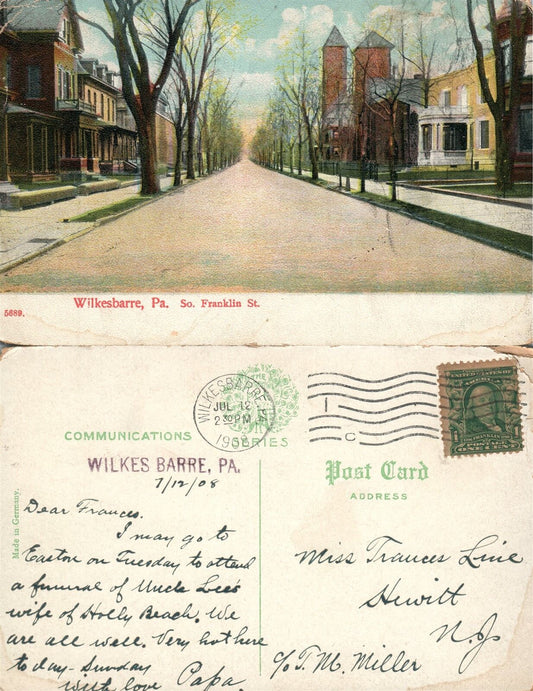 5689.
Wilkesbarre, Pa. So. Franklin St.
COMMUNICATIONS
WILKES BARRE, PA.
7/12/08
Dear Frances.
I may go to
Easton on Tuesday to attend
a funeral of Uncle Lee's
wife of Holly Beach. We
are all well. Very hot here
to day - Sunday
with love Papa.
Made in Germany.
WILKESBARRE, PA.
JUL 12
2 30 PM
1908
THE
SERIES
1
C
UNITED STATES OF
AMERICA
Post Card
ADDRESS
Miss Frances Line
Hewitt
N. J.
c/o T. M. Miller